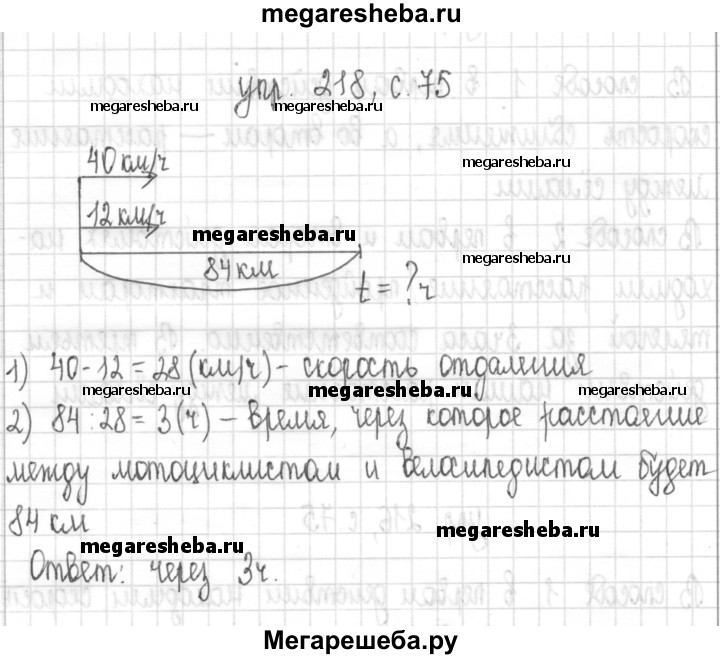 megaresheba.ru
упр. 218, с. 75
megaresheba.ru
megaresheba.ru
40 км/ч
megaresheba.ru
12 км/ч
megaresheba.ru
megaresheba.ru
84 км
t = ? ч
1) 40-12 = 28 (км/ч) - скорость отдаления
megaresheba.ru megaresheba.ru megaresheba.ru
2) 84 : 28 = 3 (ч) - время, через которое расстояние
между мотоциклистом и велосипедистом будет
84 км
megaresheba.ru megaresheba.ru
Ответ: через 3ч.
Мегарешеба.ру